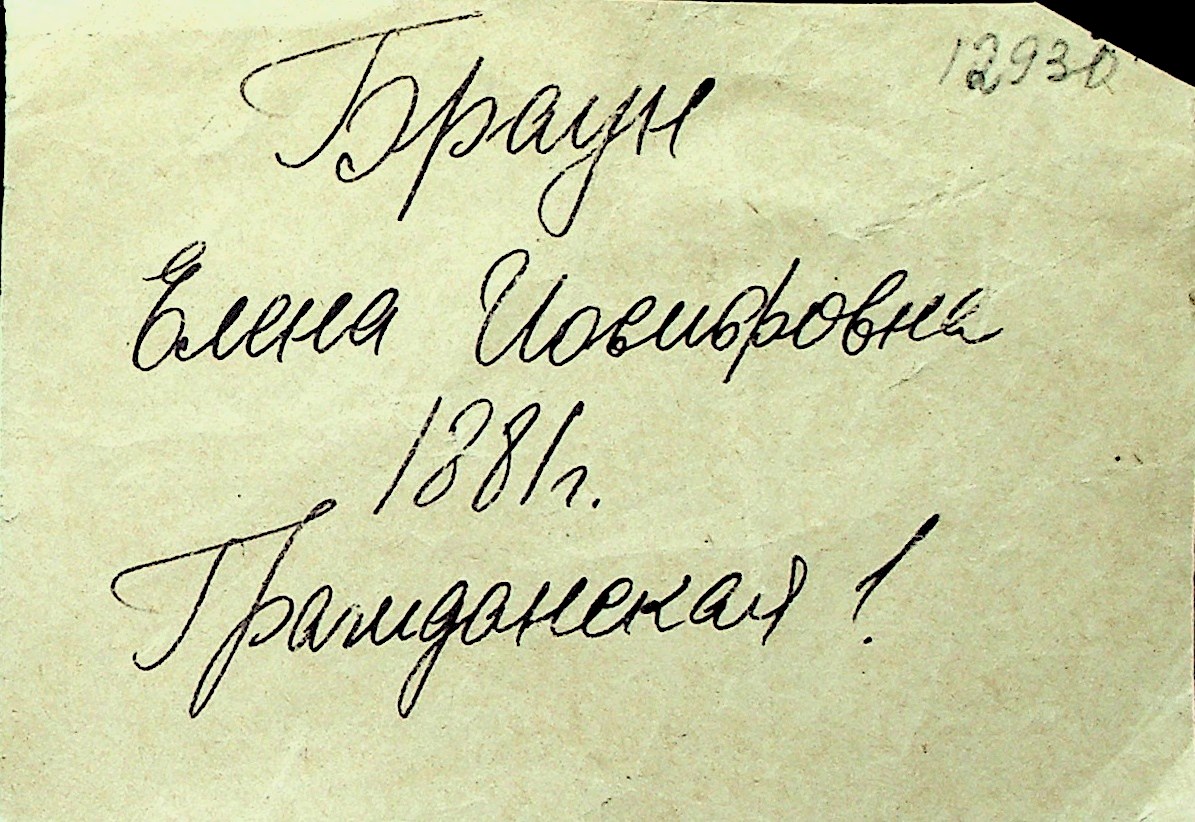 12930
Браун
Елена Иосифовна
1881г.
Гражданская!